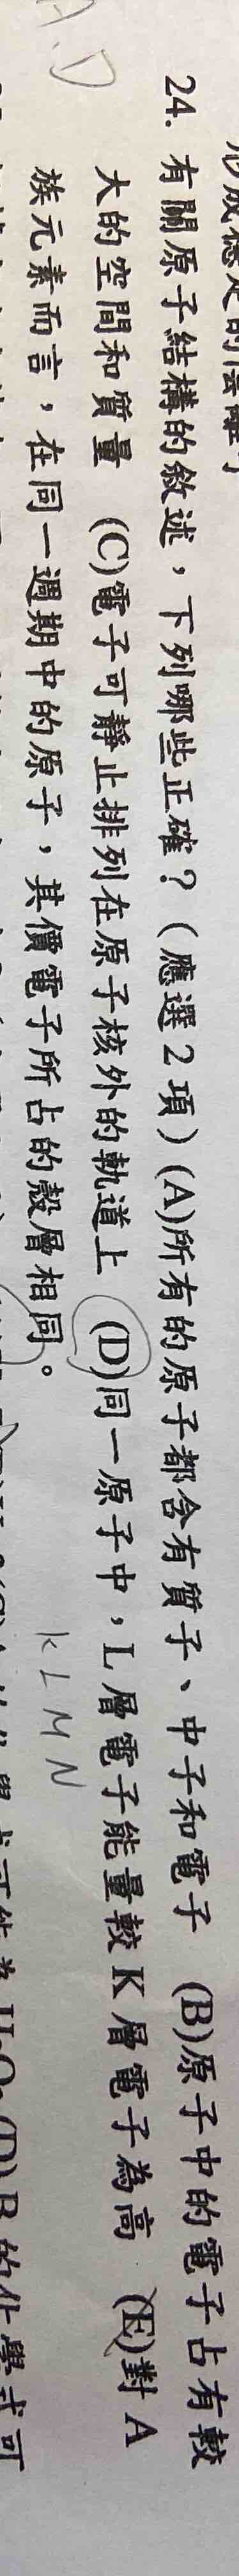 形成穩定的
24. 有關原子結構的敘述，下列哪些正確？（應選2項）(A)所有的原子都含有質子、中子和電子 (B)原子中的電子占有較
大的空間和質量 (C)電子可靜止排列在原子核外的軌道上 (D)同一原子中，L層電子能量較K層電子為高 (E)對A
族元素而言，在同一週期中的原子，其價電子所占的殼層相同。
K L M N